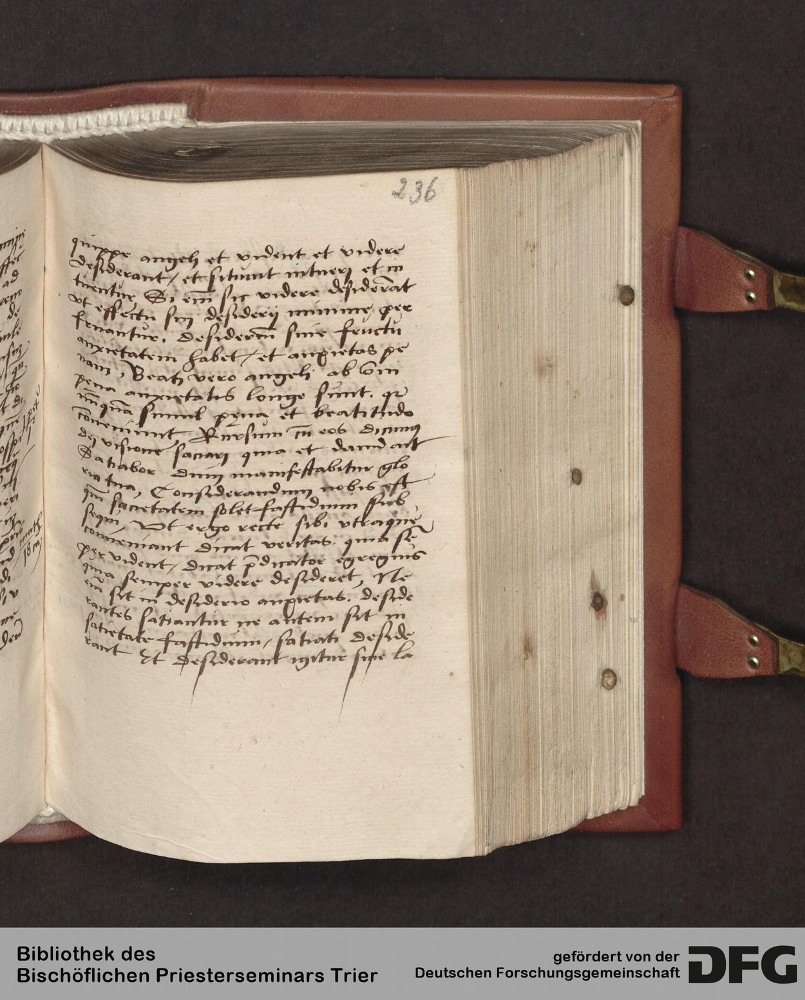 236
quippe angeli et vident et videre
desiderant / et sitiunt intueri et in
tuentur, Si em̄ sic videre desiderāt
vt effectu sui desiderij minime per
fruantur, desideriū sine fructu
anxietatem habet / et anxietas pe
nam, Beati vero angeli ab om̄i
pena anxietatis longe sunt. qr
nūquā simul pena et beatitudo
conueniunt, Rursum cū eos dicimus
dei visione satiari quia et dauid ait
Satiabor dum manifestabitur glo
ria tua, Considerandum nobis est
qm̄ sacietatem solet fastidium sub
sequi, Vt ergo recte sibi vtraque
conueniant dicat veritas quia sē
per vident, dicat p̄dicator egregius
quia semper videre desideret, Ne
em̄ sit in desiderio anxietas, deside
rantes satiantur ne autem sit in
satietate fastidium, satiati deside
rant Et desiderant igitur sine la
Bibliothek des
Bischöflichen Priesterseminars Trier
gefördert von der
Deutschen Forschungsgemeinschaft
DFG